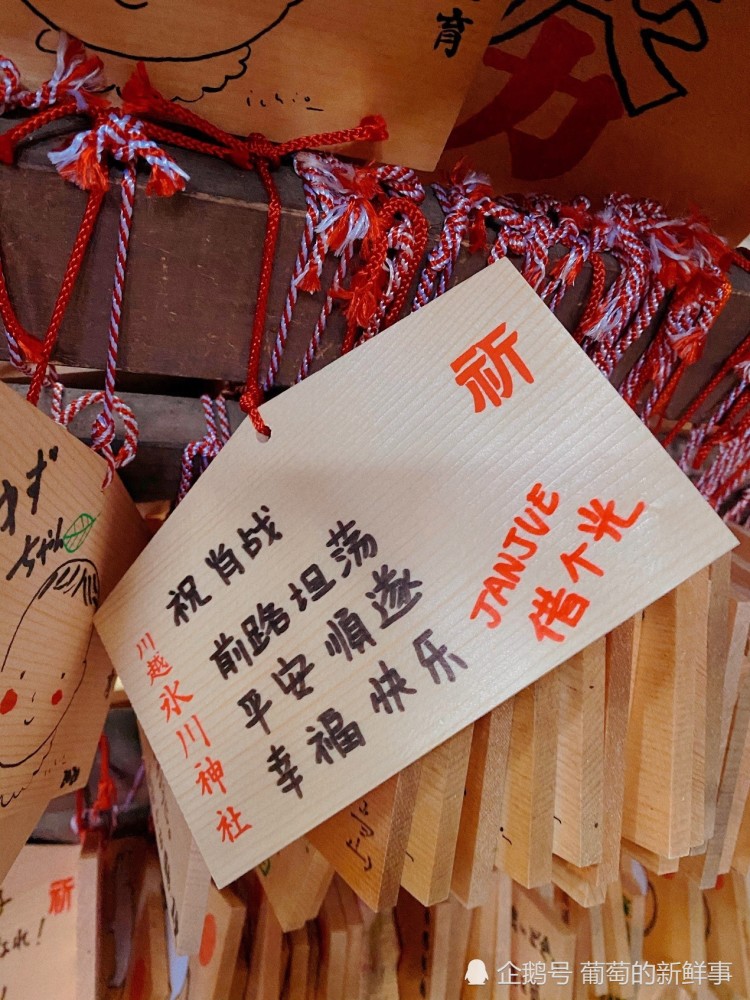 育
ichio
力
祈
祝肖战
前路坦荡
平安順遂
幸福快乐
JANJUE
借个光
川越氷川神社
オオ
ちゃん
祈
企鹅号 葡萄的新鲜事